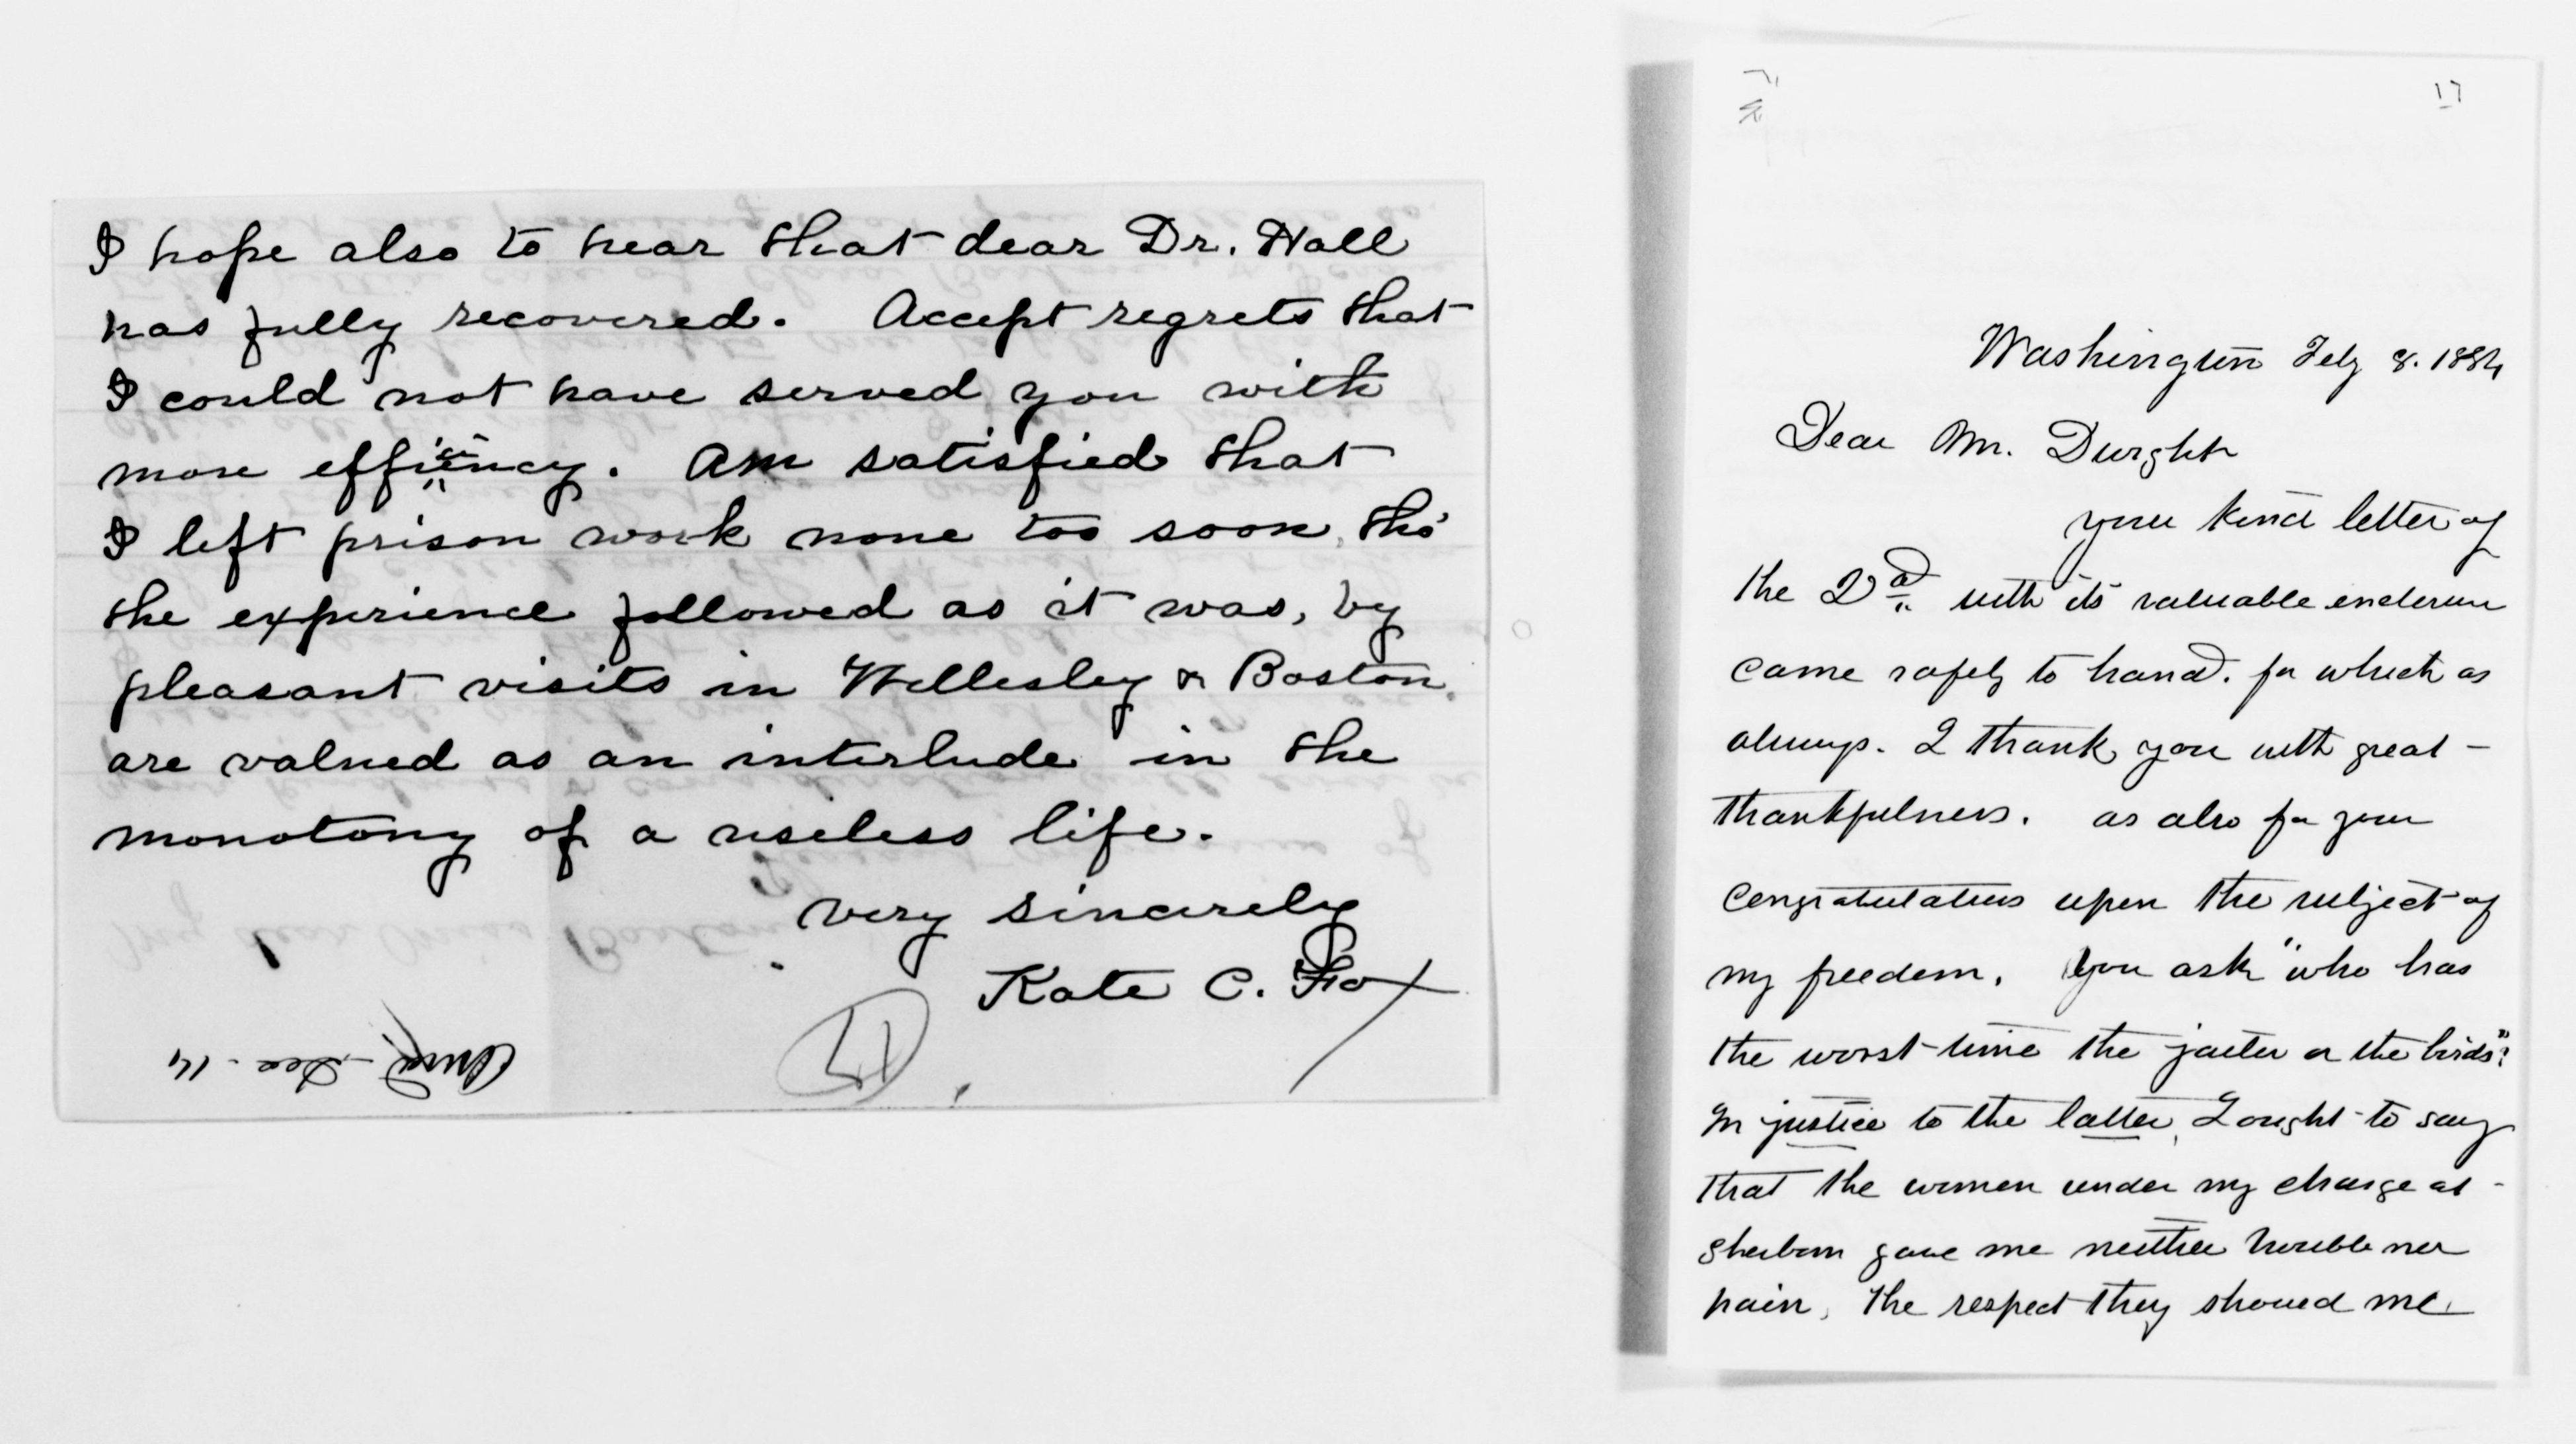 I hope also to hear that dear Dr. Hall
has fully recovered. Accept regrets that
I could not have served you with
more efficiency. Am satisfied that
I left prison work none too soon, tho'
the experience followed as it was, by
pleasant visits in Wellesley & Boston,
are valued as an interlude in the
monotony of a useless life.
Very sincerely
Kate C. Fox
Ansd - Dec. 14
17
Washington Feby 8. 1884
Dear Mr. Dwight
your kind letter of
the 2d with its valuable enclosure
came safely to hand. for which as
always. I thank you with great
thankfulness. as also for your
congratulations upon the subject of
my freedom. You ask "who has
the worst time the jailer or the birds"?
In justice to the latter, I ought to say
that the women under my charge at
Sherborn gave me neither trouble nor
pain, the respect they showed me